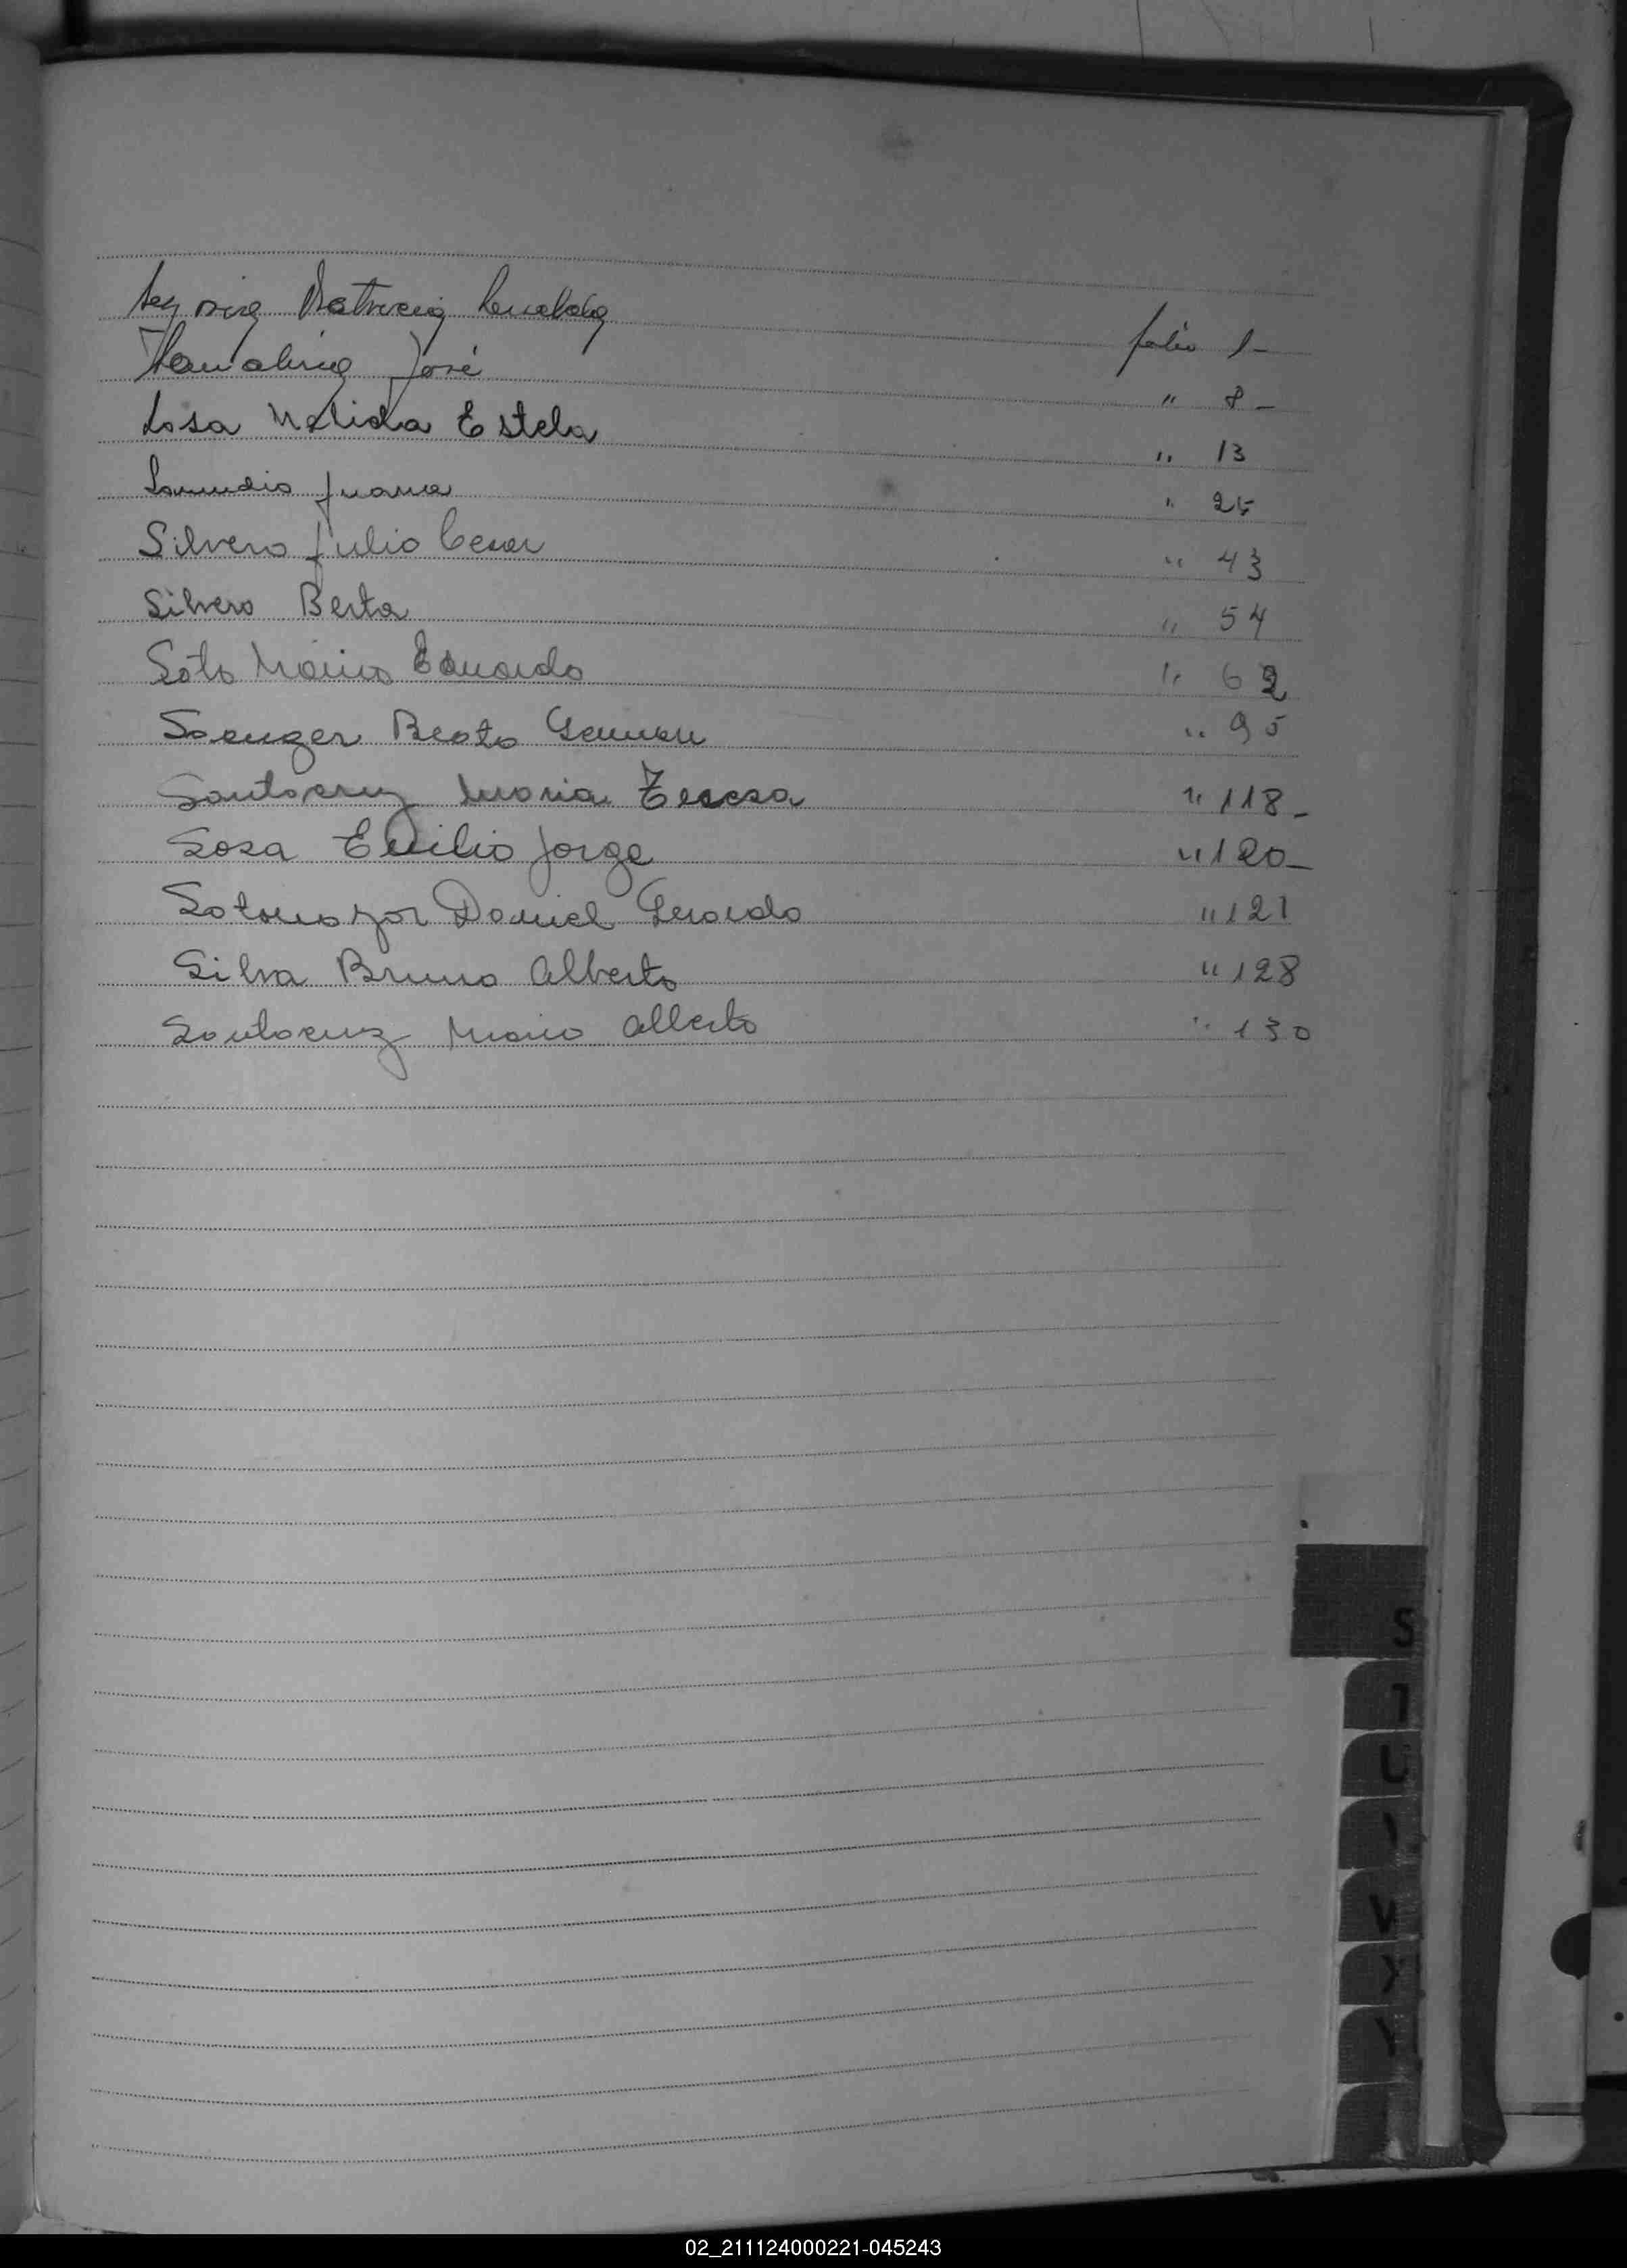 José folio 1-
" 8-
Sosa Nelida Estela " 13
Juana " 25
Silvero Julio Cesar " 43
Silvero Berta " 54
Soto Mario Eduardo " 62
Saenger Beato German " 95
Santacruz Maria Teresa " 118-
Sosa Emilio Jorge " 120-
Sotomayor Daniel Gerardo " 121
Silva Bruno Alberto " 128
Santacruz Mario Alberto " 130
S
V
X
Y
02_211124000221-045243